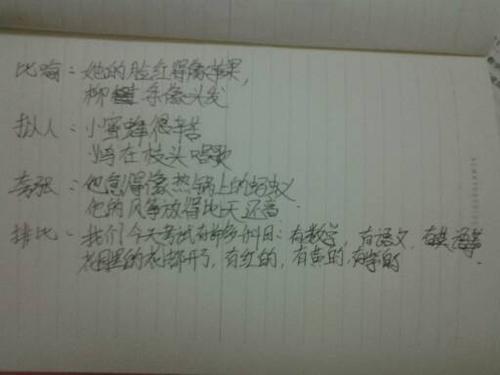 比喻：她的脸红得像苹果，
柳条像头发
拟人：小蜜蜂很辛苦
鸟在枝头唱歌
夸张：他急得像热锅上的蚂蚁
他的风筝放得比天还高
排比：我们今天考试有许多科目：有数学，有语文，有英语等
花园里的花都开了，有红的，有黄的，有紫的